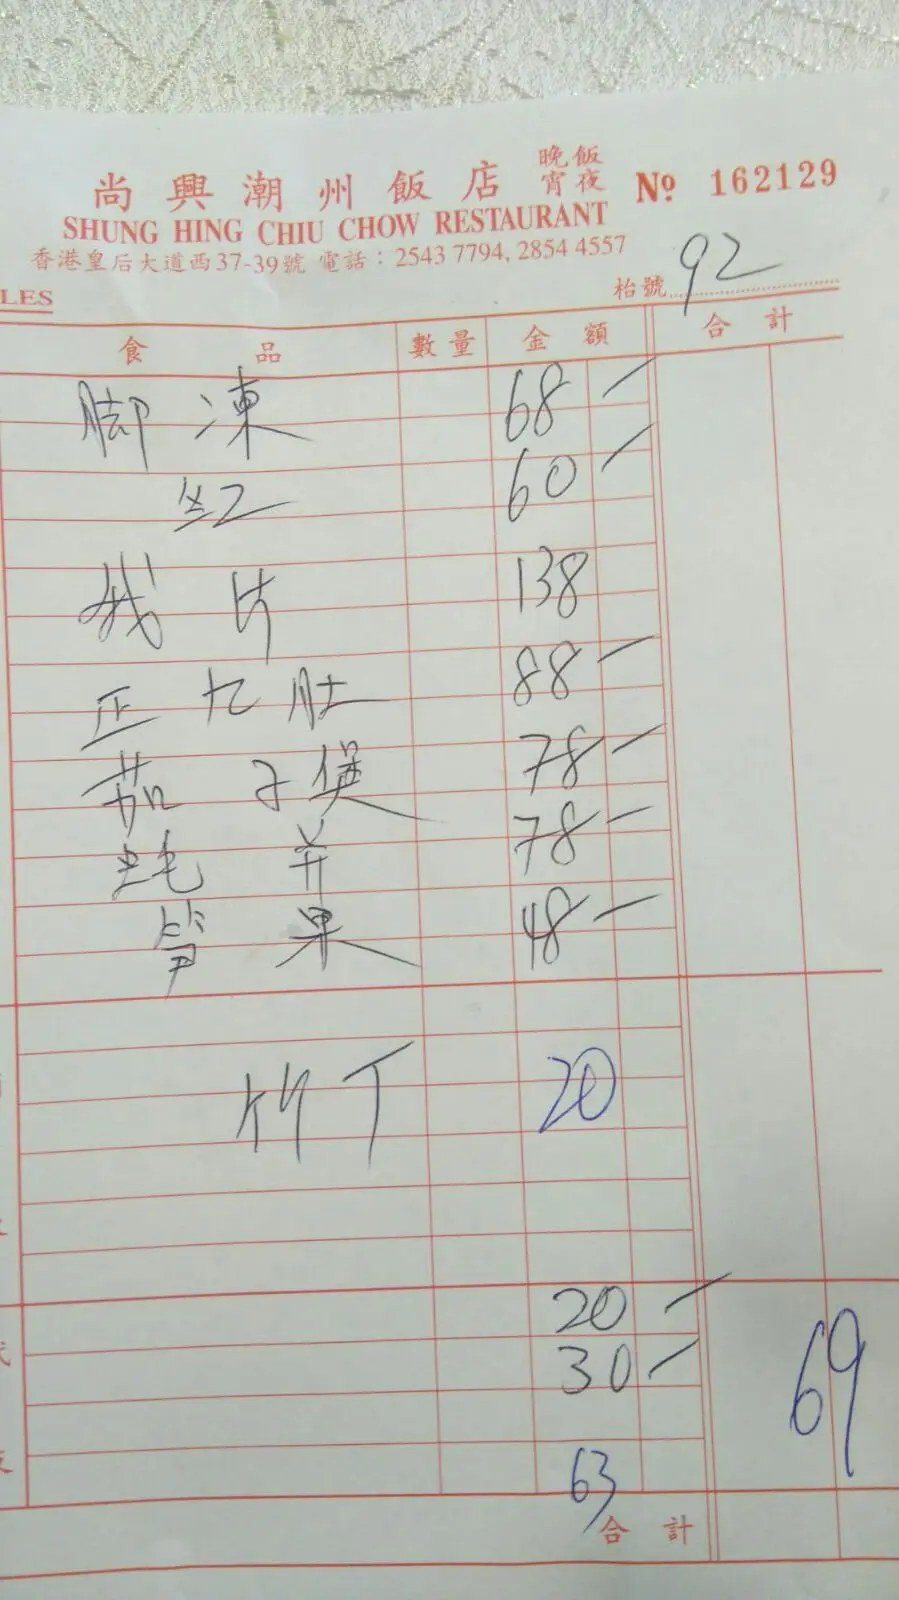 尚興潮州飯店 晚飯宵夜 № 162129
SHUNG HING CHIU CHOW RESTAURANT
香港皇后大道西37-39號 電話：2543 7794, 2854 4557
LES
枱號 92
食品 數量 金額 合計
脚凍 68 –
紅 60 –
片 138
正 九 肚 88 –
茄子煲 78 –
78 –
筍果 48 –
竹丁 20
20 –
30 –
69
63
合計